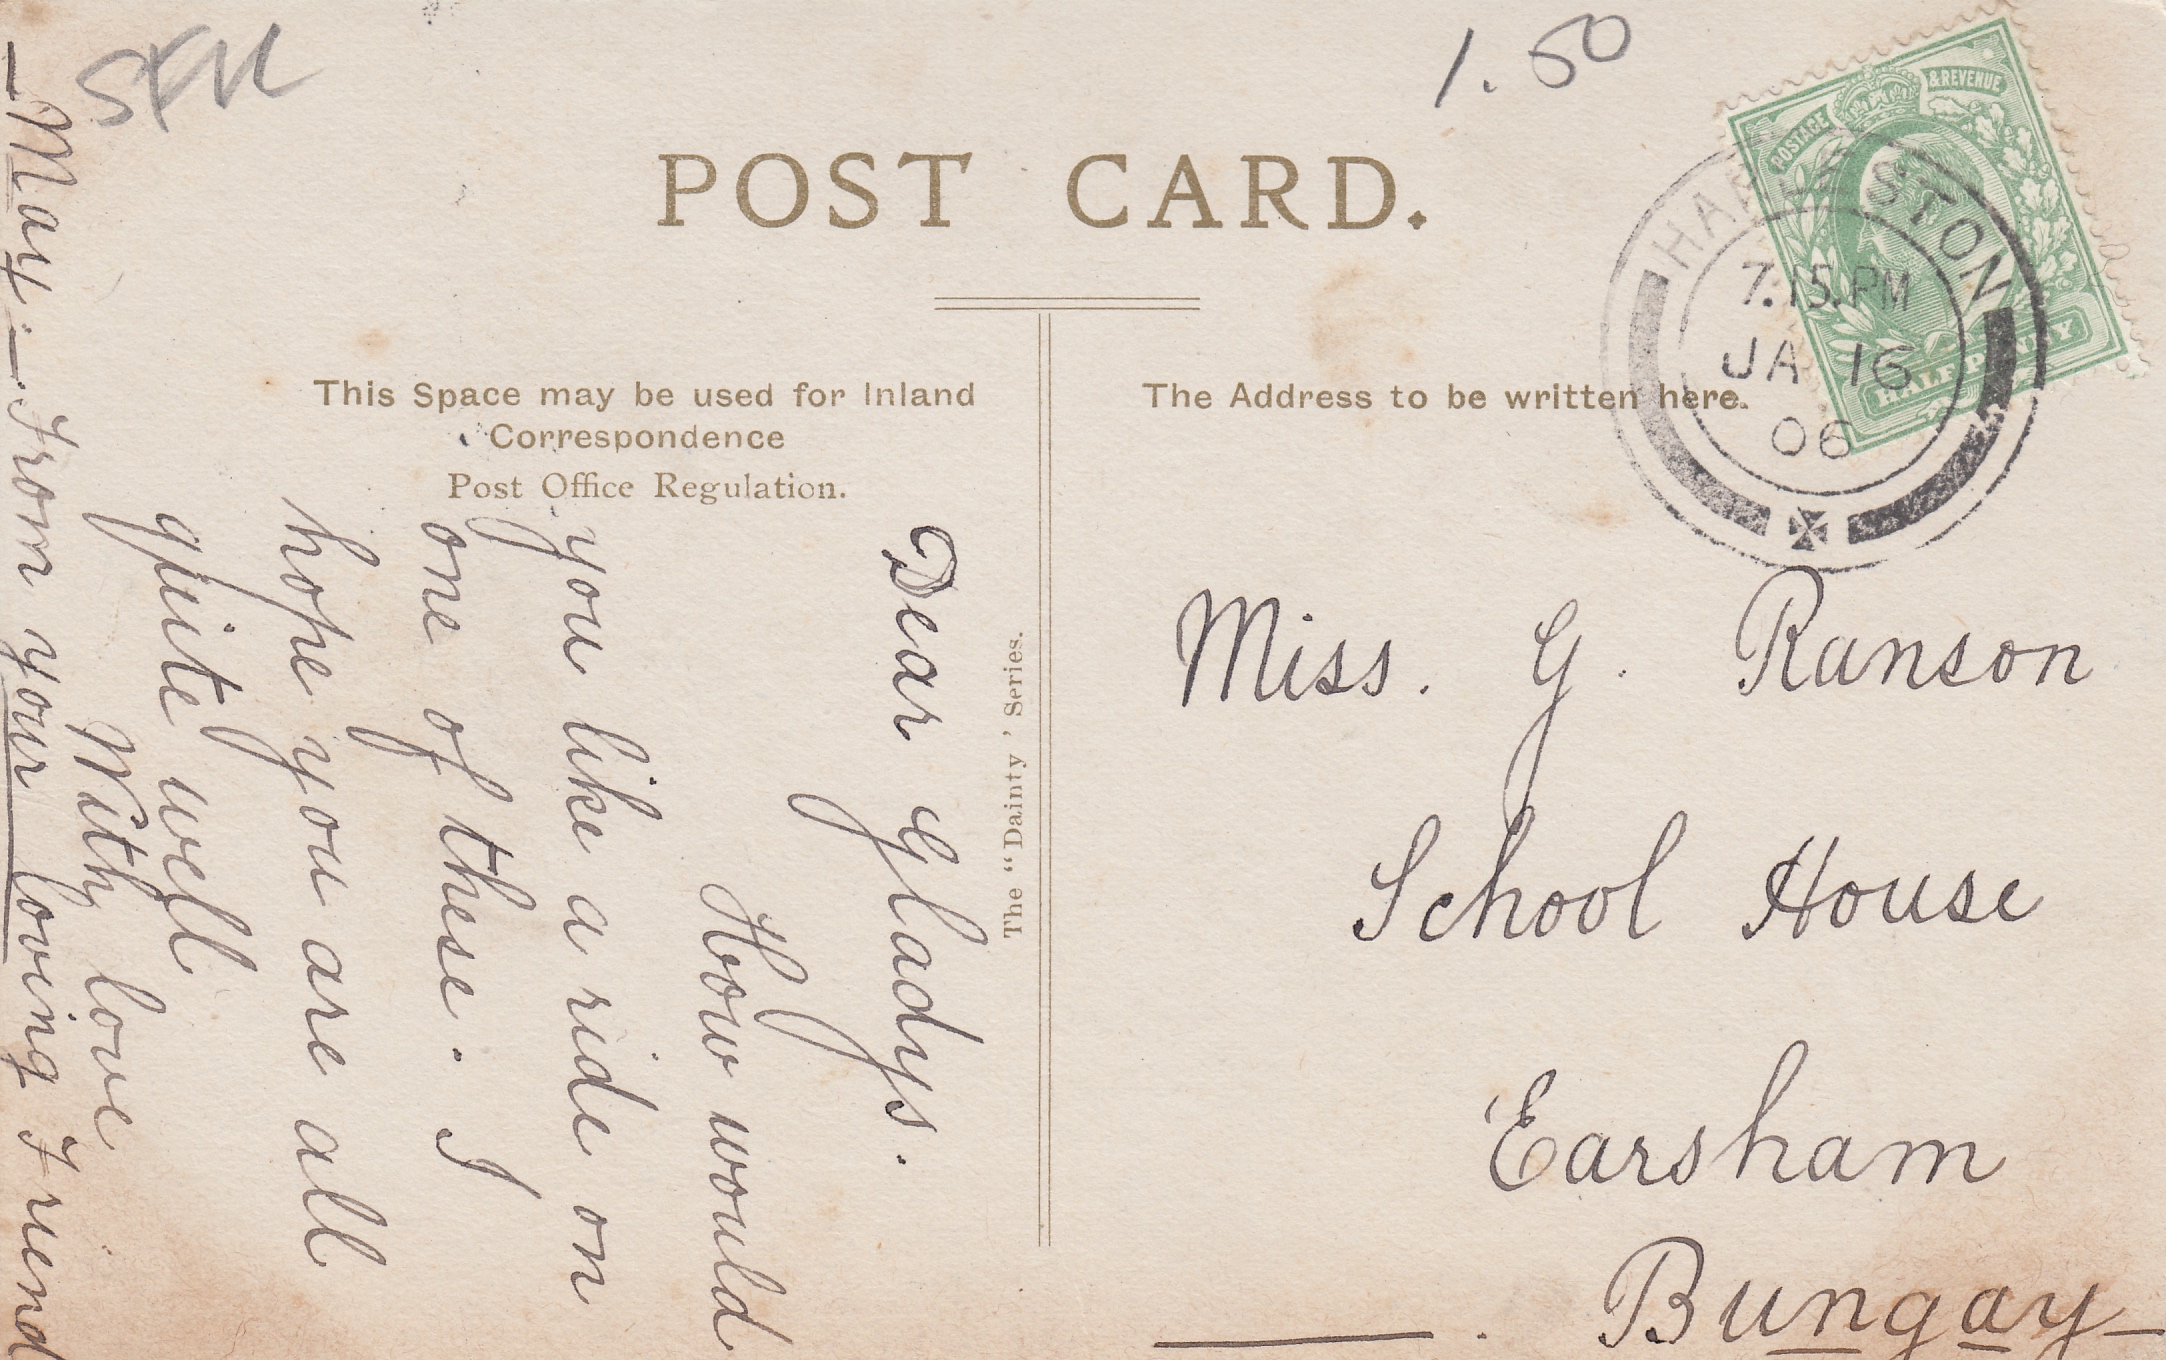 SFK
1.50
POSTAGE & REVENUE
HALF PENNY
HARLESTON
7.15.PM
JA 16
06
POST CARD.
This Space may be used for Inland
Correspondence
Post Office Regulation.
The Address to be written here.
The "Dainty" Series.
Dear Gladys.
How would
you like a ride on
one of these. I
hope you are all
quite well
With love
From your loving Friend
— May. —
Miss. G. Ranson
School House
Earsham
Bungay